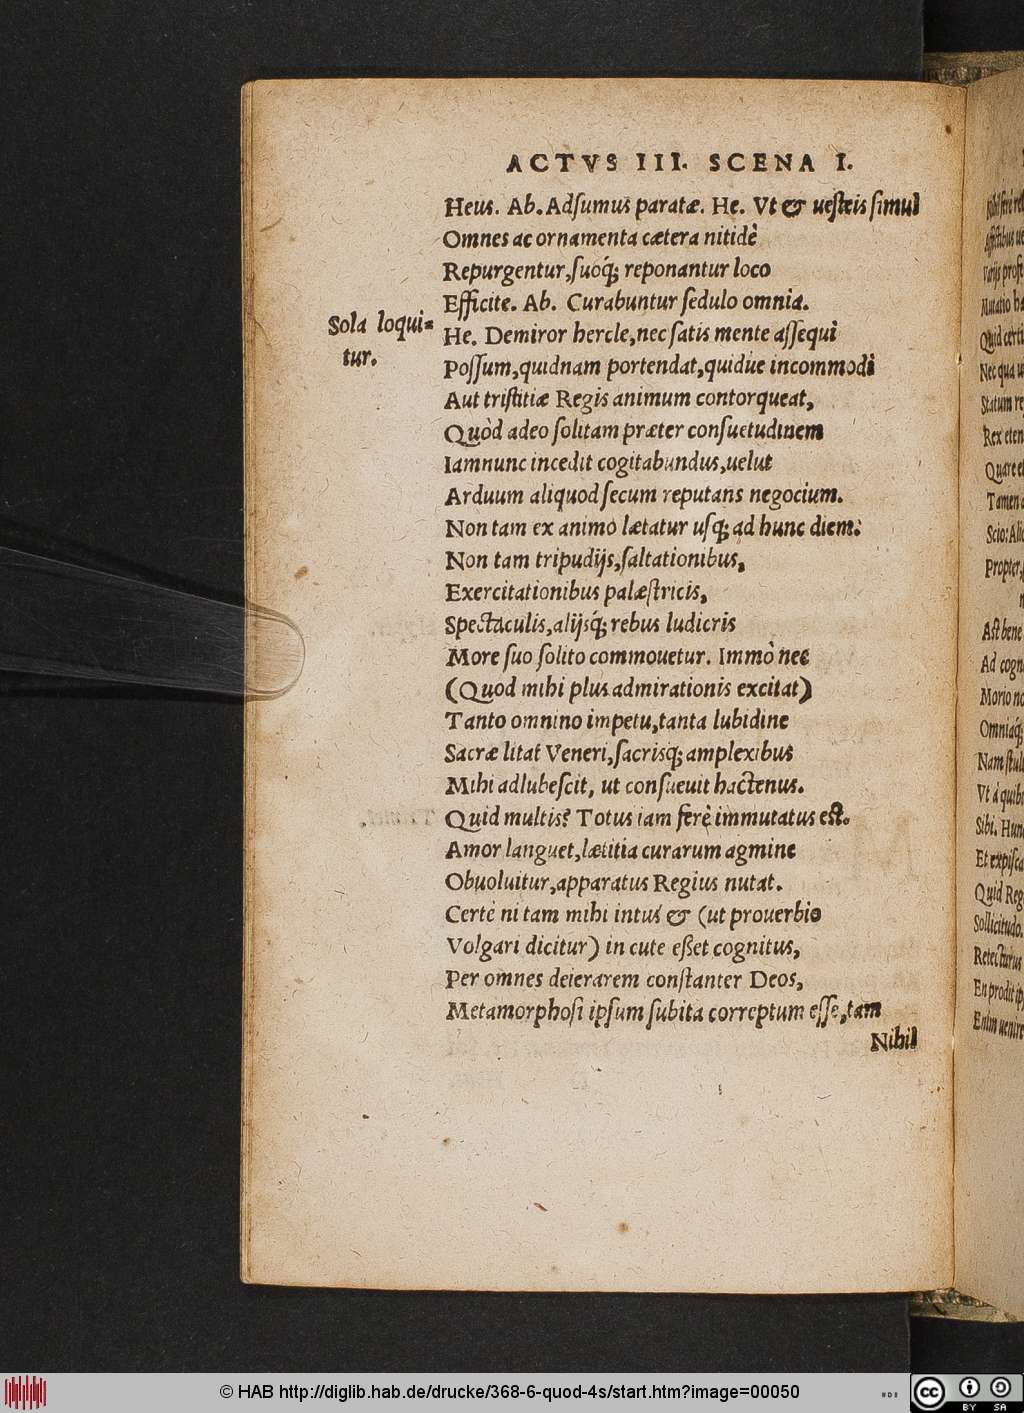 ACTVS III. SCENA I.
Heus. Ab. Adsumus paratæ. He. Vt & uesteis simul
Omnes ac ornamenta cætera nitidè
Repurgentur, suoq́; reponantur loco
Efficite. Ab. Curabuntur sedulo omnia.
Sola loqui=
tur.
He. Demiror hercle, nec satis mente assequi
Possum, quidnam portendat, quidùe incommodi
Aut tristitiæ Regis animum contorqueat,
Quòd adeo solitam præter consuetudinem
Iamnunc incedit cogitabundus, uelut
Arduum aliquod secum reputans negocium.
Non tam ex animo lætatur usq; ad hunc diem:
Non tam tripudijs, saltationibus,
Exercitationibus palæstricis,
Spectaculis, alijsq́; rebus ludicris
More suo solito commouetur. Immò nec
(Quod mihi plus admirationis excitat)
Tanto omnino impetu, tanta lubidine
Sacræ litat Veneri, sacrisq; amplexibus
Mihi adlubescit, ut consueuit hactenus.
Quid multis? Totus iam ferè immutatus est.
Amor languet, lætitia curarum agmine
Obuoluitur, apparatus Regius nutat.
Certè ni tam mihi intus & (ut prouerbio
Volgari dicitur) in cute esset cognitus,
Per omnes deierarem constanter Deos,
Metamorphosi ipsum subita correptum esse, tam
Nihil
Mutatio
Quid
Nec qua
Statum
Rex
Quare
Tamen
Scio: Alio
Propter
Ast bene
Ad
Morio
Omniaq́;
Vt à
Sibi.
Et
Quid
Sollicitudo.
Retecturus
En prodit
Enim uenire
© HAB http://diglib.hab.de/drucke/368-6-quod-4s/start.htm?image=00050
cc
BY SA